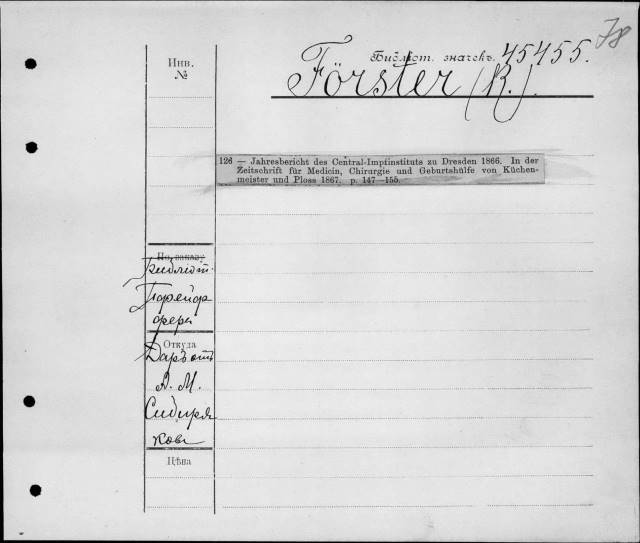 78
Библіот. значекъ. 45455.
Förster (R.).
Инв.
№
126 — Jahresbericht des Central-Impfinstituts zu Dresden 1866. In der
Zeitschrift für Medicin, Chirurgie und Geburtshülfe von Küchen-
meister und Ploss 1867. p. 147—155.
По заказу
Библіот.
Порейор
фера
Откуда
Даръ отъ
А. М.
Сибиря
кова
Цѣна